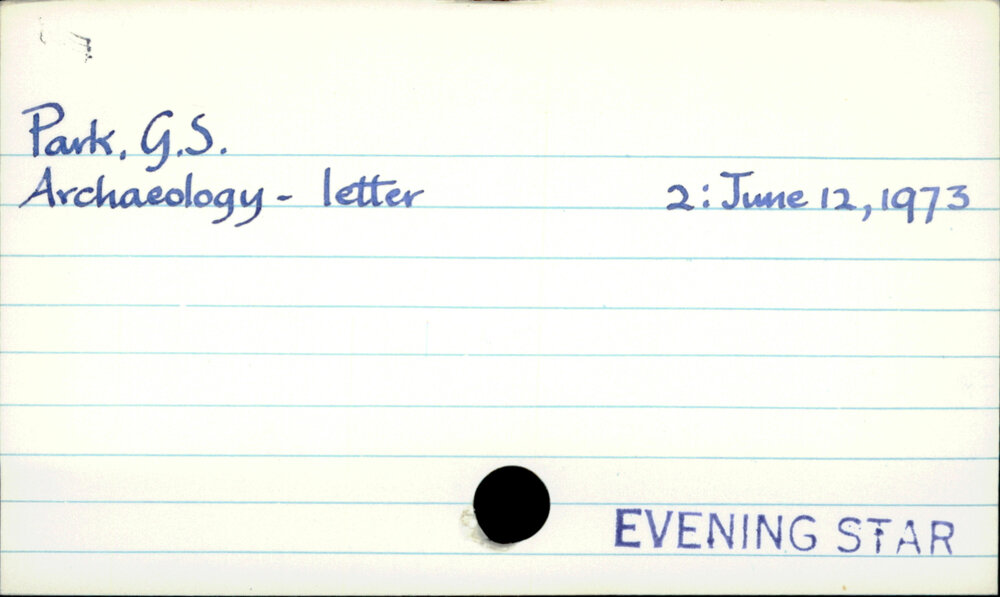 Park, G.S.
Archaeology - letter 2: June 12, 1973
EVENING STAR